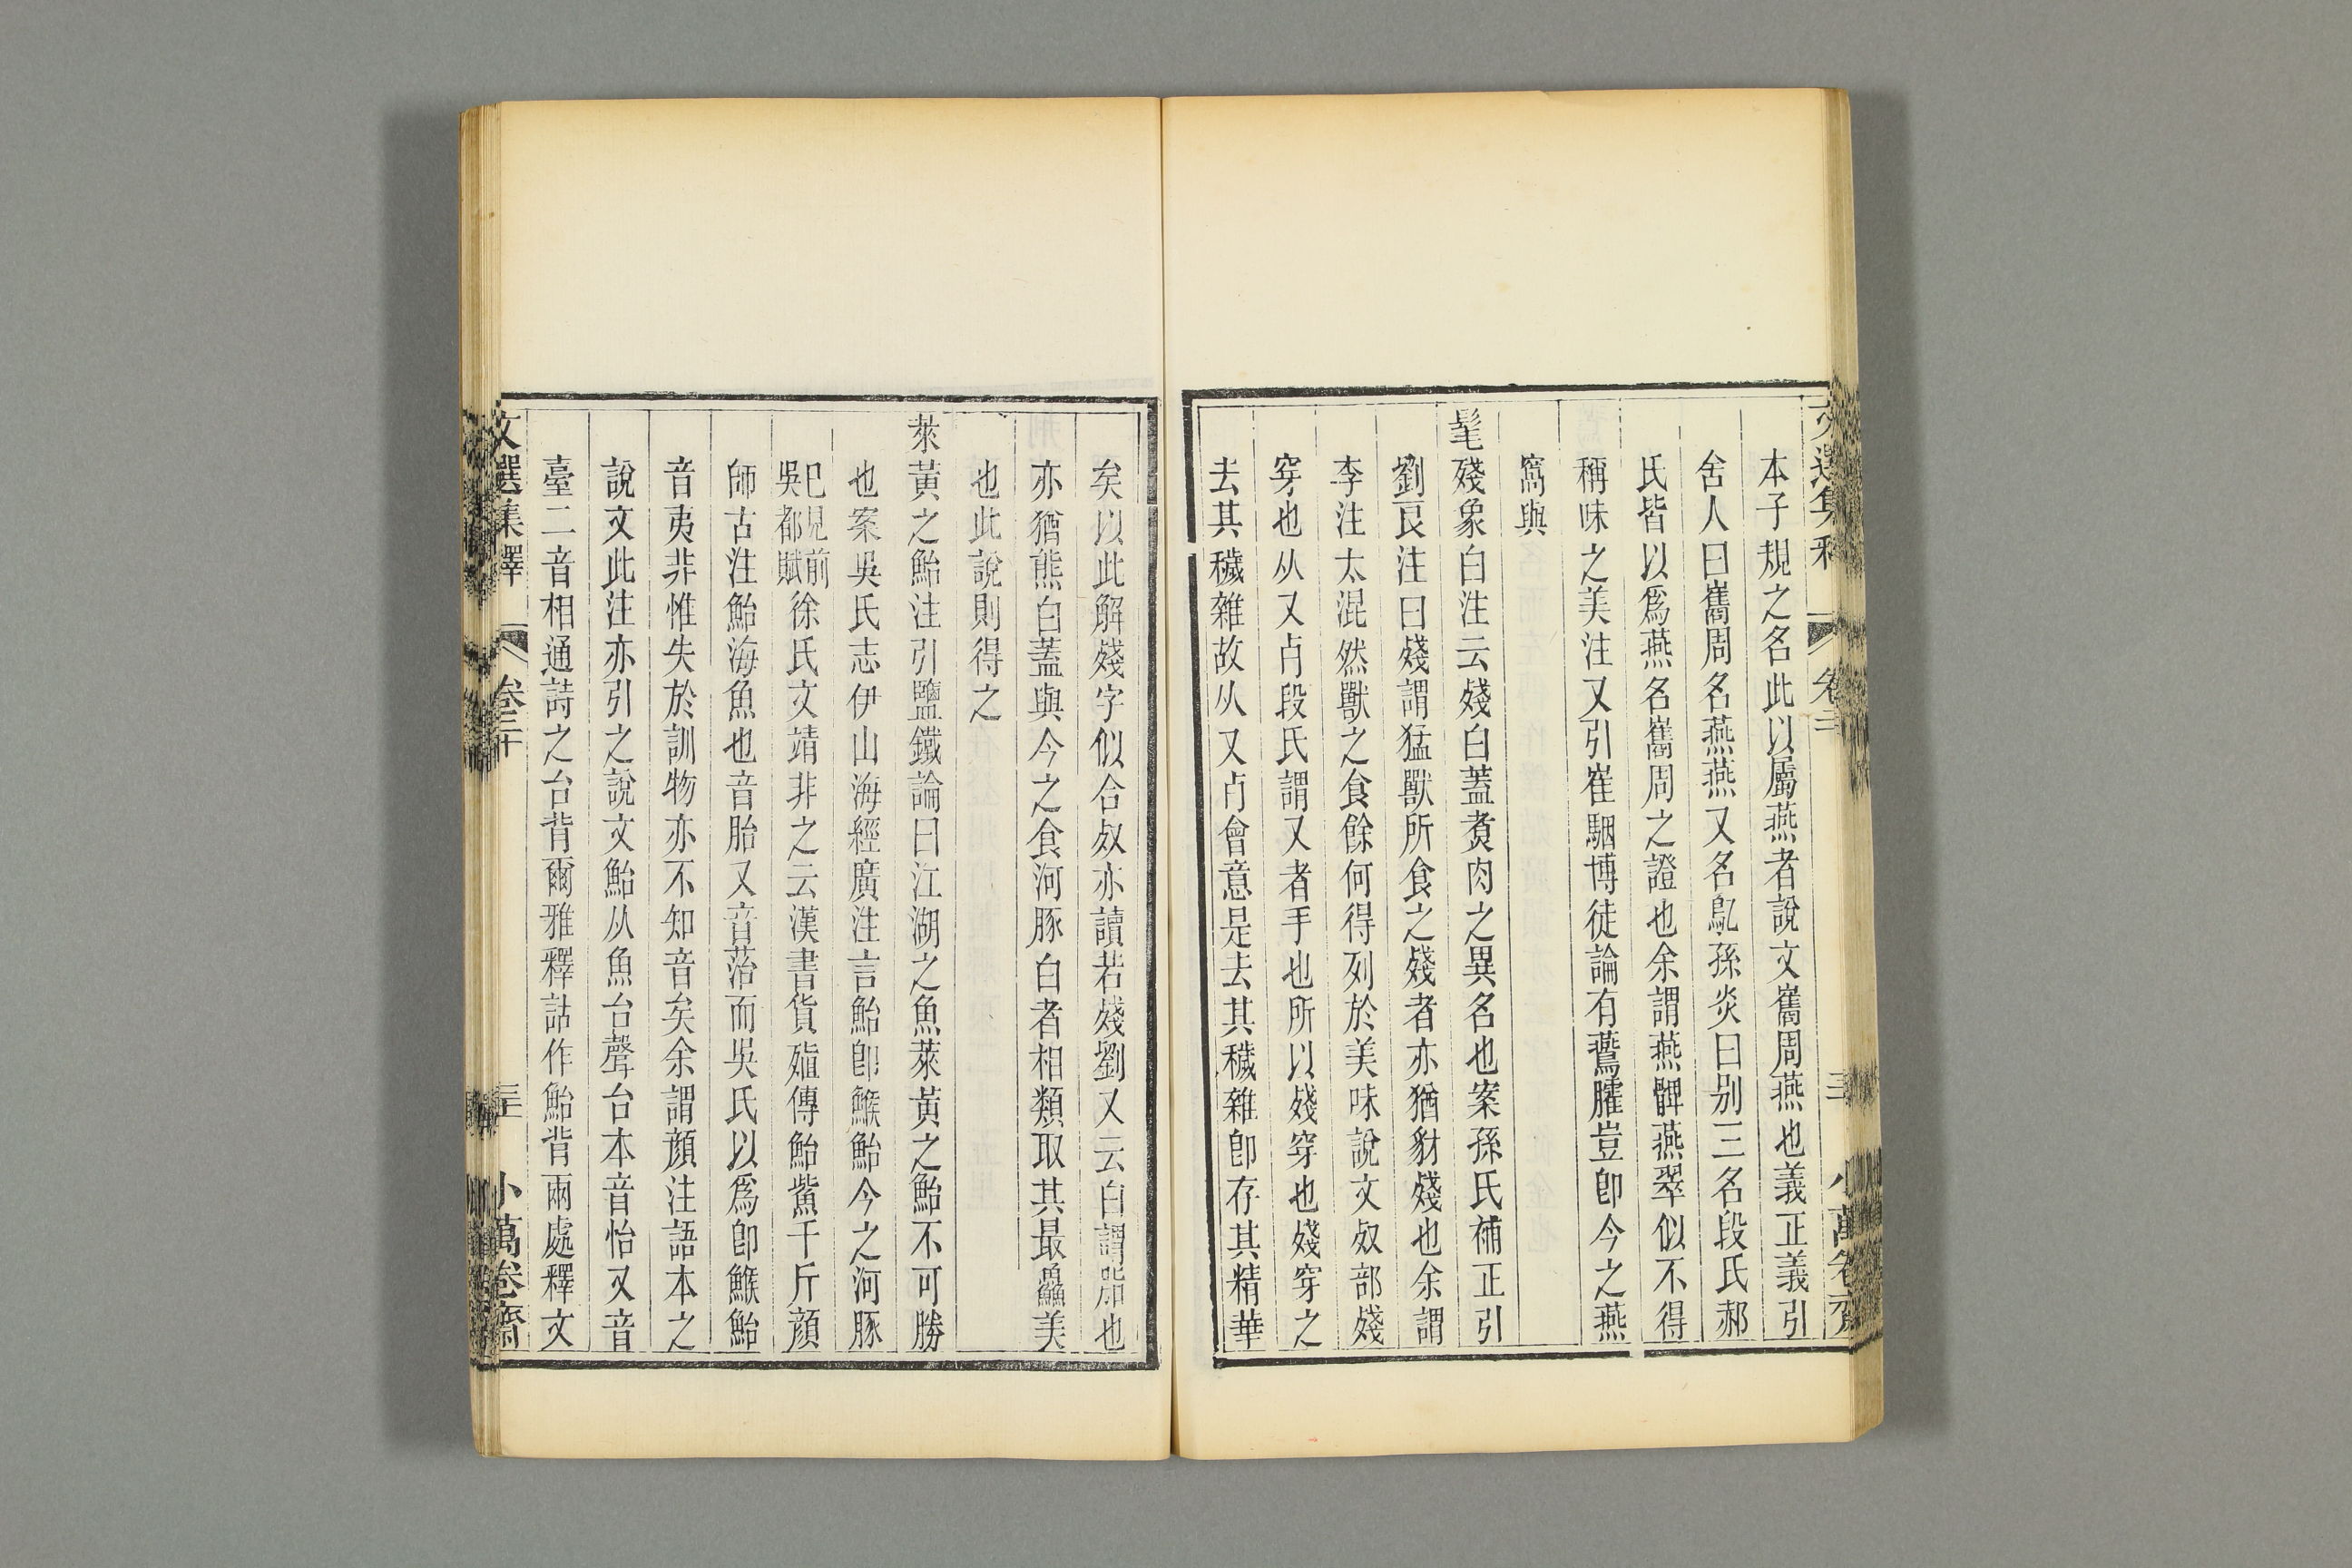 本子規之名此以屬燕者說文嶲周燕也義正義引
舍人曰嶲周名燕燕又名鳦孫炎曰别三名段氏郝
氏皆以爲燕名嶲周之證也余謂燕髀燕翠似不得
稱味之美注又引崔駰博徒論有鷰臛豈卽今之燕
窩與
髦殘象白注云殘白蓋煑肉之異名也案孫氏補正引
劉良注曰殘謂猛獸所食之殘者亦猶豺殘也余謂
李注太混然獸之食餘何得列於美味說文𣦼部殘
穿也从又歺段氏謂又者手也所以殘穿也殘穿之
去其穢雜故从又歺會意是去其穢雜卽存其精華
矣以此解殘字似合𣦼亦讀若殘劉又云白謂脂也
亦猶熊白蓋與今之食河豚白者相類取其最鱻美
也此說則得之
萊黃之鮐注引鹽鐵論曰江湖之魚萊黃之鮐不可勝
也案吳氏志伊山海經廣注言鮐卽鯸鮐今之河豚
巳見前吳都賦徐氏文靖非之云漢書貨殖傳鮐鮆千斤顔
師古注鮐海魚也音胎又音菭而吳氏以爲卽鯸鮐
音夷非惟失於訓物亦不知音矣余謂顔注語本之
說文此注亦引之說文鮐从魚台聲台本音怡又音
臺二音相通詩之台背爾雅釋詁作鮐背兩處釋文
文選集釋 卷二十 三 小萬卷齋